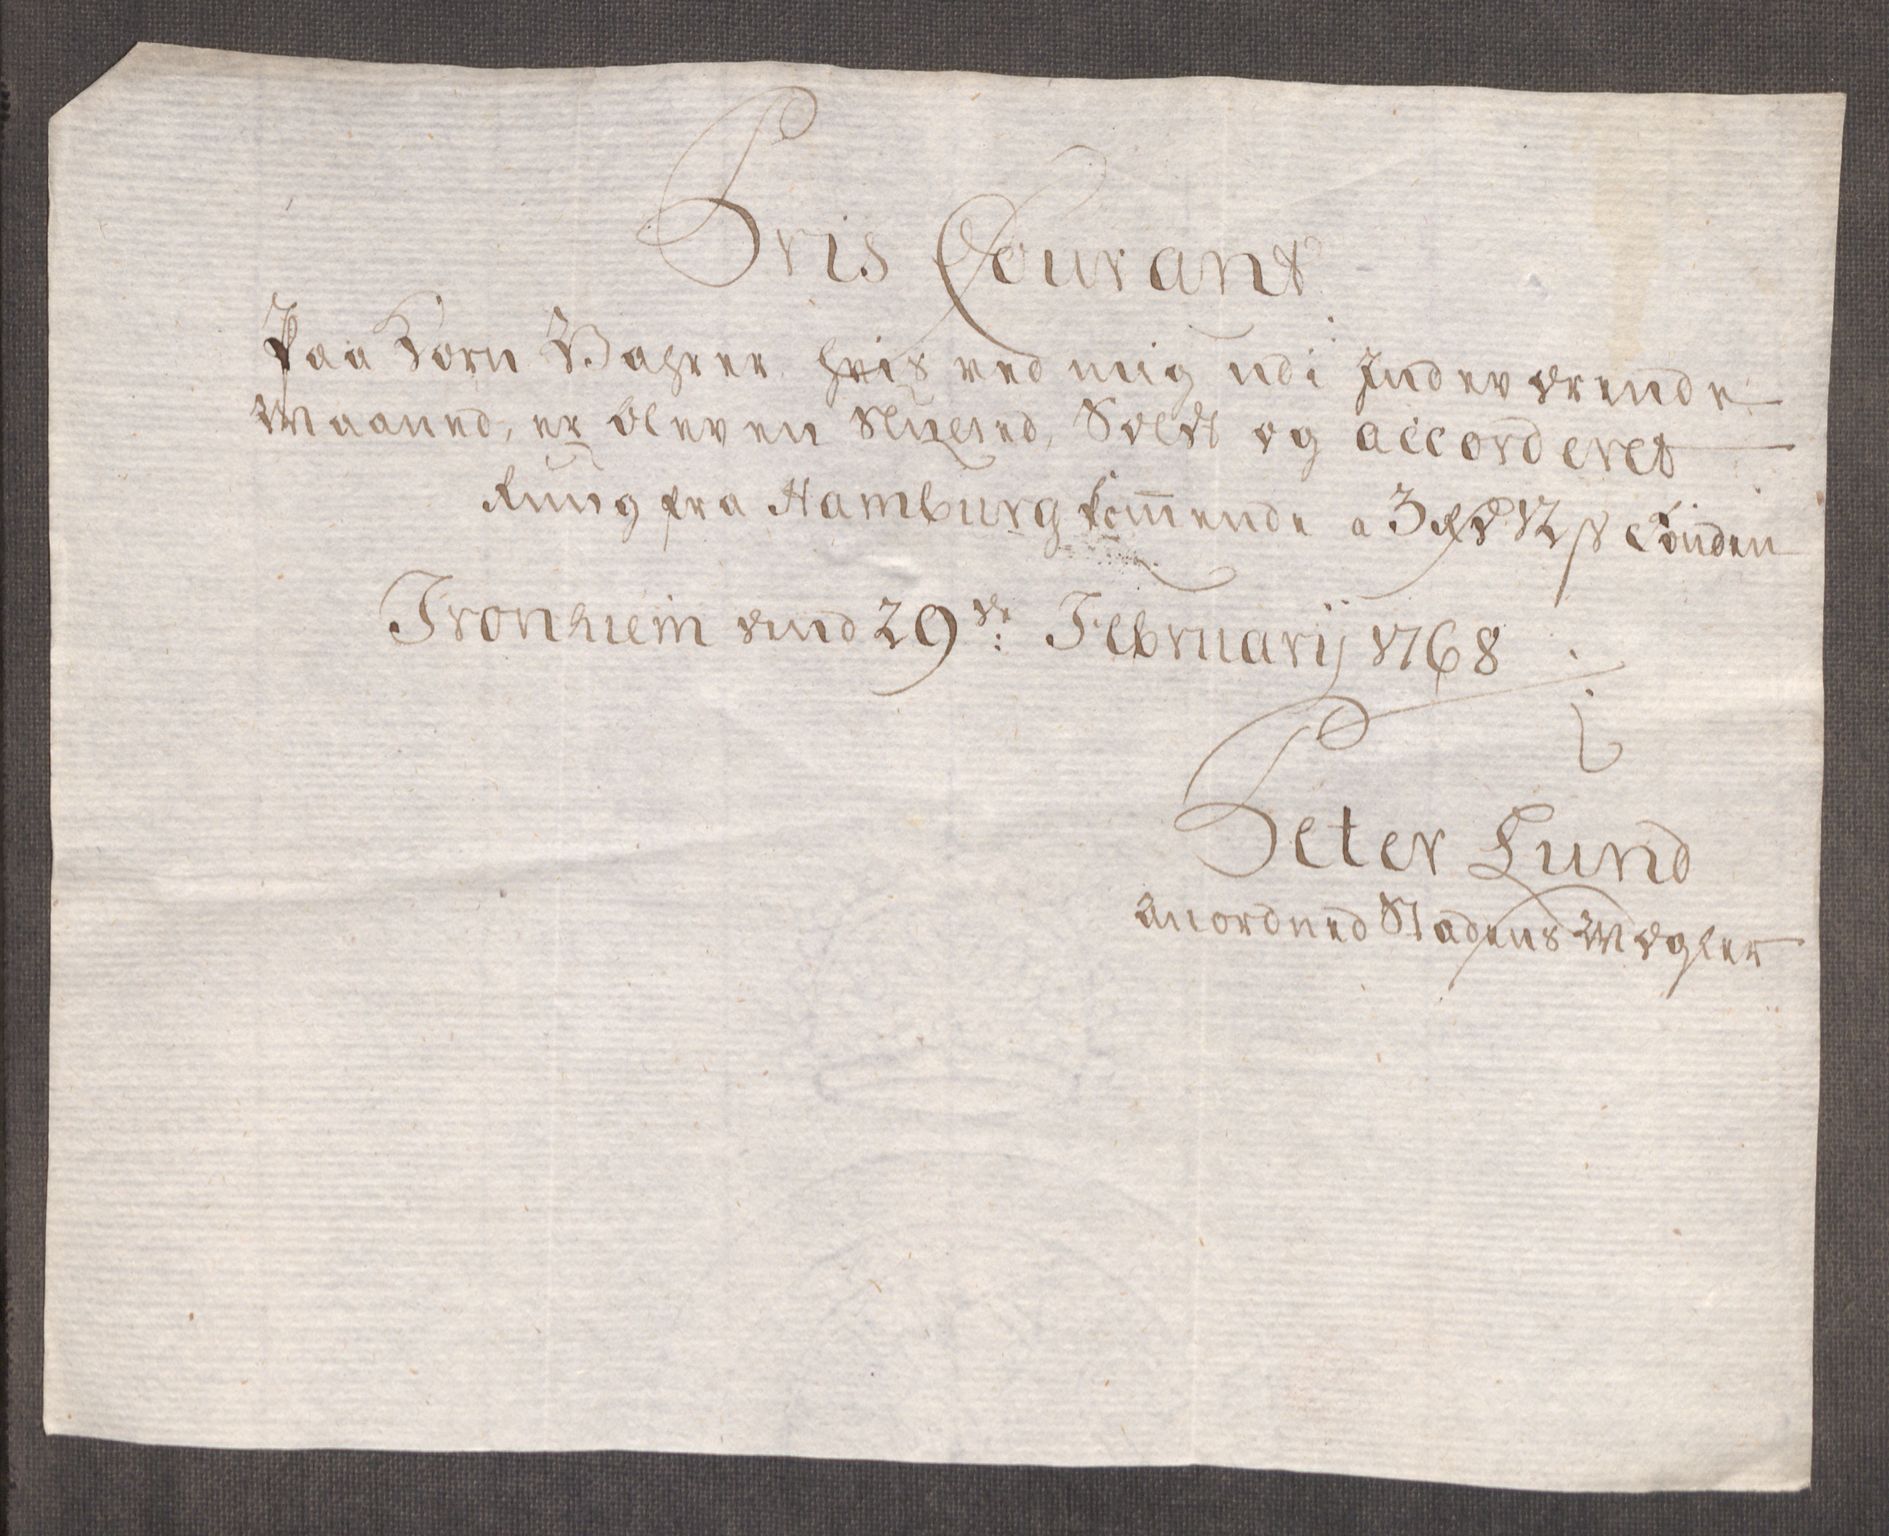 Pris Courant
Paa Korn Wahrer hvis ved mig udi Indeværende
Maaned, er bleven Sluted, Soldt og accorderet
Rug fra Hamburg kom̅ende a 3 Rd 12 s Tönden
Tronhiem dend 29de: Februarij 1768
Peter Lund
Anordned Stadens Mægler